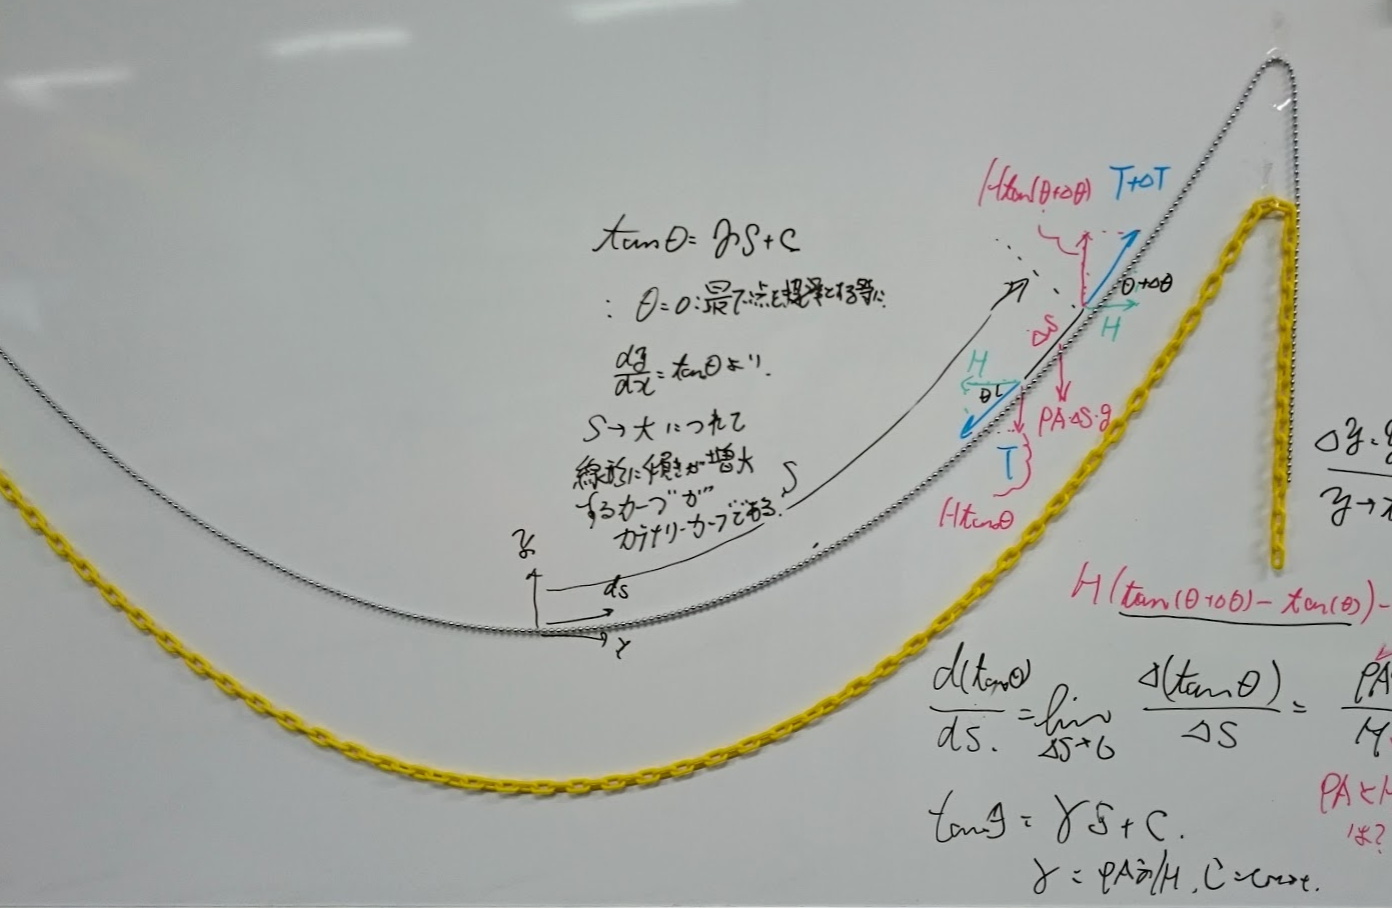 tanθ = γS + C
: θ=0:最下点を規準とする等に
dy/dx = tanθ より.
S→大につれて
線形に傾きが増大
するカーブが
カテナリーカーブである.
S
y
ds
x
Htan(θ+Δθ)
T+ΔT
θ+Δθ
H
ΔS
H
θ
ρA·ΔS·g
T
Htanθ
Δy
y→
H(tan(θ+Δθ) - tan(θ)) -
d(tanθ)/ds. = lim ΔS→0 Δ(tanθ)/ΔS = ρA
H
tanθ = γS + C.
γ = ρAg/H, C = const.
ρAとH
は?